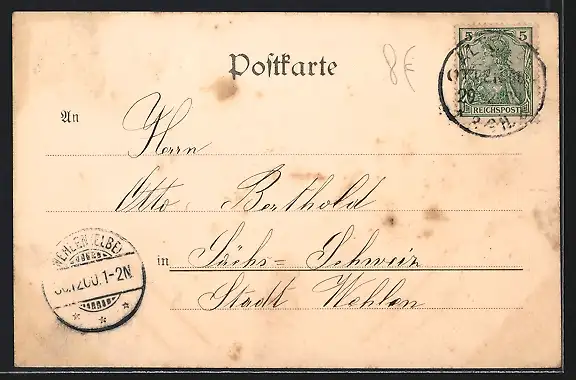 Postkarte
8€
5 5
REICHSPOST
An
Herrn
Otto Berthold
in Sächs= Schweiz
Stadt Wehlen
WEHLEN (ELBE)
00.1-2N